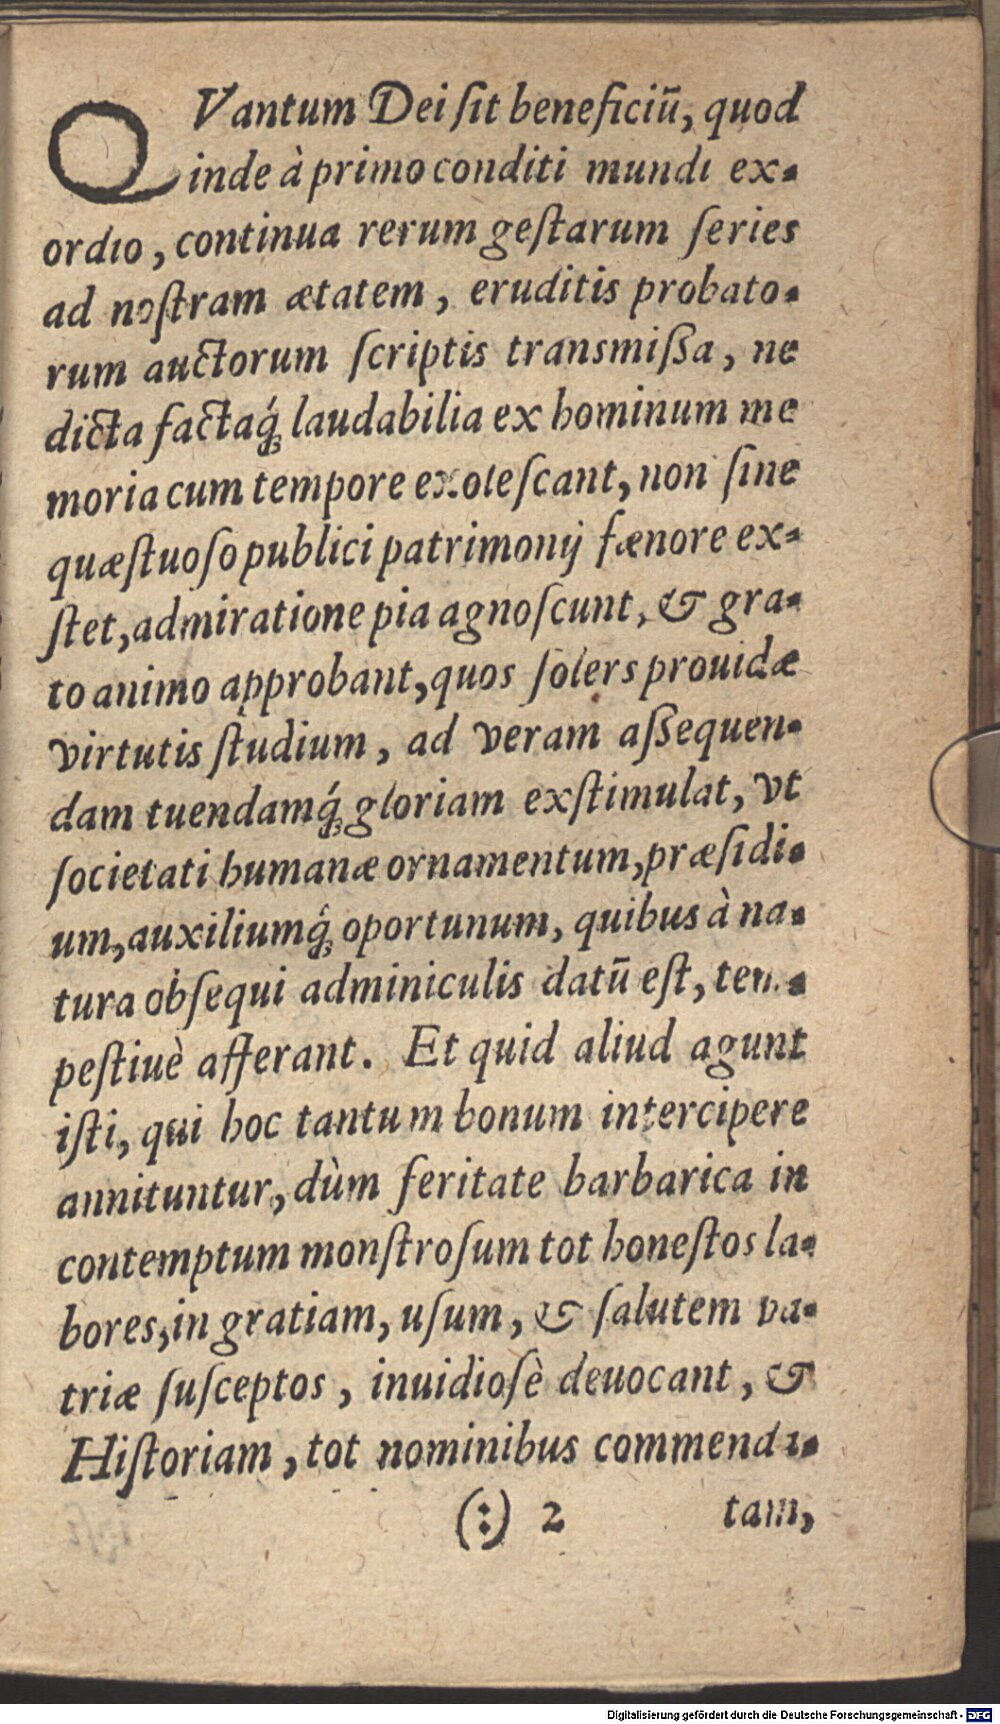 QVantum Dei ſit beneficiū, quod
inde à primo conditi mundi ex-
ordio, continua rerum geſtarum ſeries
ad noſtram ætatem, eruditis probato-
rum auctorum ſcriptis transmiſſa, ne
dicta factaq́; laudabilia ex hominum me
moria cum tempore exoleſcant, non ſine
quæſtuoſo publici patrimonij fænore ex-
ſtet, admiratione pia agnoſcunt, & gra-
to animo approbant, quos ſolers prouidæ
virtutis ſtudium, ad veram aſſequen-
dam tuendamq́; gloriam exſtimulat, vt
ſocietati humanæ ornamentum, præſidi-
um, auxiliumq́; oportunum, quibus à na-
tura obſequi adminiculis datū eſt, tem-
peſtiuè afferant. Et quid aliud agunt
iſti, qui hoc tantum bonum intercipere
annituntur, dùm feritate barbarica in
contemptum monſtroſum tot honeſtos la-
bores, in gratiam, uſum, & ſalutem pa-
triæ ſuſceptos, inuidioſè deuocant, &
Hiſtoriam, tot nominibus commenda-
(:) 2 tam,
Digitalisierung gefördert durch die Deutsche Forschungsgemeinschaft - DFG